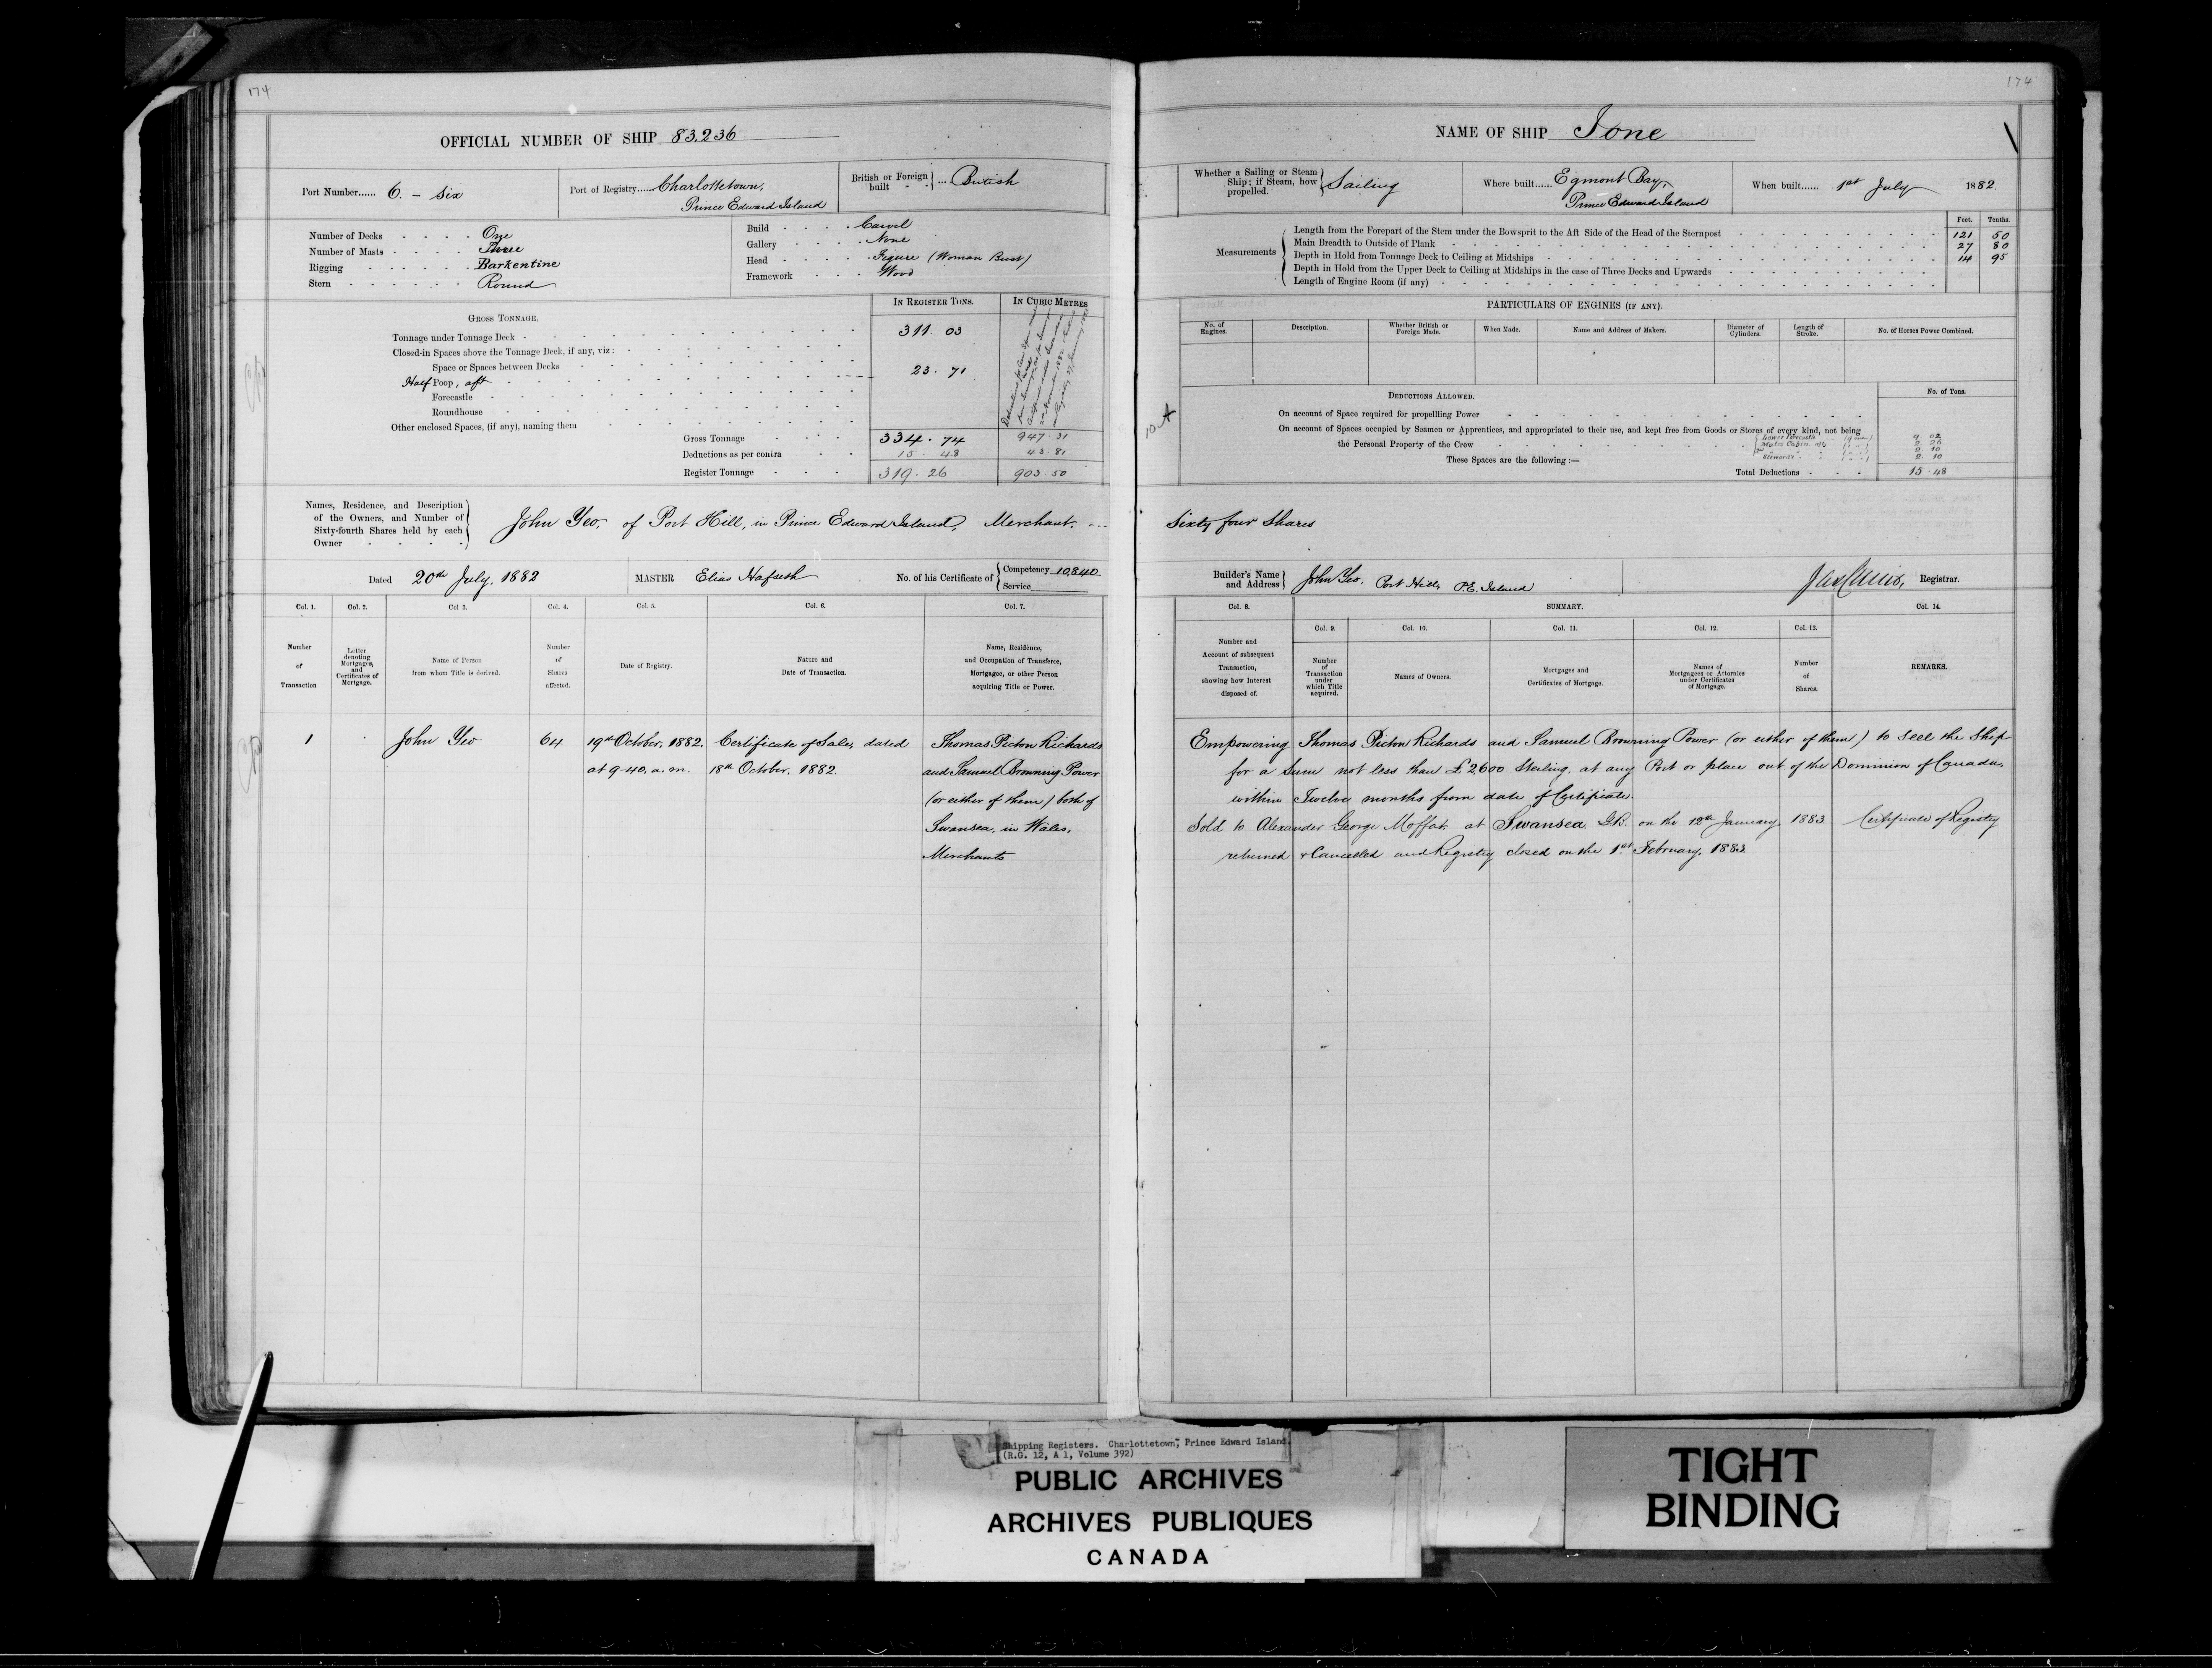 174
OFFICIAL NUMBER OF SHIP 83,236
Port Number...... 6. - Six
Port of Registry..... Charlottetown,
Prince Edward Island
British or Foreign built ... British
Number of Decks One
Number of Masts Three
Rigging Barkentine
Stern Round
Build Carvel
Gallery None
Head Figure (Woman Bust)
Framework Wood
GROSS TONNAGE.
IN REGISTER TONS.
IN CUBIC METRES
Tonnage under Tonnage Deck 311. 03
Closed-in Spaces above the Tonnage Deck, if any, viz:
Space or Spaces between Decks
Half Poop, aft 23. 71
Forecastle
Roundhouse
Other enclosed Spaces, (if any), naming them
Gross Tonnage 334. 74 947. 31
Deductions as per contra 15. 48 43. 81
Register Tonnage 319. 26 903. 50
Names, Residence, and Description
of the Owners, and Number of
Sixty-fourth Shares held by each
Owner
John Yeo, of Port Hill, in Prince Edward Island, Merchant. ---
Dated 20th July, 1882
MASTER Elias
No. of his Certificate of Competency 10,840
Service
Col. 1. Col. 2. Col 3. Col. 4. Col. 5. Col. 6. Col. 7.
Number of Transaction
Letter denoting Mortgages, and Certificates of Mortgage.
Name of Person from whom Title is derived.
Number of Shares affected.
Date of Registry.
Nature and Date of Transaction.
Name, Residence, and Occupation of Transferee, Mortgagee, or other Person acquiring Title or Power.
1 John Yeo 64 19th October, 1882. Certificate of Sale, dated Thomas Picton Richards
at 9.40. a.m. 18th October, 1882. and Samuel Browning Power
(or either of them) both of
Swansea, in Wales,
Merchants
174
NAME OF SHIP Ione
Whether a Sailing or Steam Ship; if Steam, how propelled. Sailing
Where built...... Egmont Bay,
Prince Edward Island
When built...... 1st July 1882.
Feet. Tenths.
Measurements
Length from the Forepart of the Stem under the Bowsprit to the Aft Side of the Head of the Sternpost 121 50
Main Breadth to Outside of Plank 27 80
Depth in Hold from Tonnage Deck to Ceiling at Midships 14 95
Depth in Hold from the Upper Deck to Ceiling at Midships in the case of Three Decks and Upwards
Length of Engine Room (if any)
PARTICULARS OF ENGINES (IF ANY).
No. of Engines.
Description.
Whether British or Foreign Made.
When Made.
Name and Address of Makers.
Diameter of Cylinders.
Length of Stroke.
No. of Horses Power Combined.
DEDUCTIONS ALLOWED.
No. of Tons.
On account of Space required for propellling Power
On account of Spaces occupied by Seamen or Apprentices, and appropriated to their use, and kept free from Goods or Stores of every kind, not being
the Personal Property of the Crew
These Spaces are the following :—
Total Deductions 15. 48
Sixty four Shares
Builder's Name and Address John Yeo. Port Hill, P.E. Island
Registrar.
Col. 8.
SUMMARY.
Col. 14.
Col. 9. Col. 10. Col. 11. Col. 12. Col. 13.
Number and Account of subsequent Transaction, showing how Interest disposed of.
Number of Transaction under which Title acquired.
Names of Owners.
Mortgages and Certificates of Mortgage.
Names of Mortgagees or Attornies under Certificates of Mortgage.
Number of Shares.
REMARKS.
Empowering Thomas Picton Richards and Samuel Browning Power (or either of them) to sell the Ship
for a Sum not less than £2,600 Sterling, at any Port or place out of the Dominion of Canada,
within Twelve months from date of Certificate.
Sold to Alexander George Moffat, at Swansea G.B. on the 12th January, 1883 Certificate of Registry
returned & Cancelled and Registry closed on the 1st February, 1883.
Shipping Registers. Charlottetown, Prince Edward Island.
(R.G. 12, A 1, Volume 392)
PUBLIC ARCHIVES
ARCHIVES PUBLIQUES
CANADA
TIGHT
BINDING